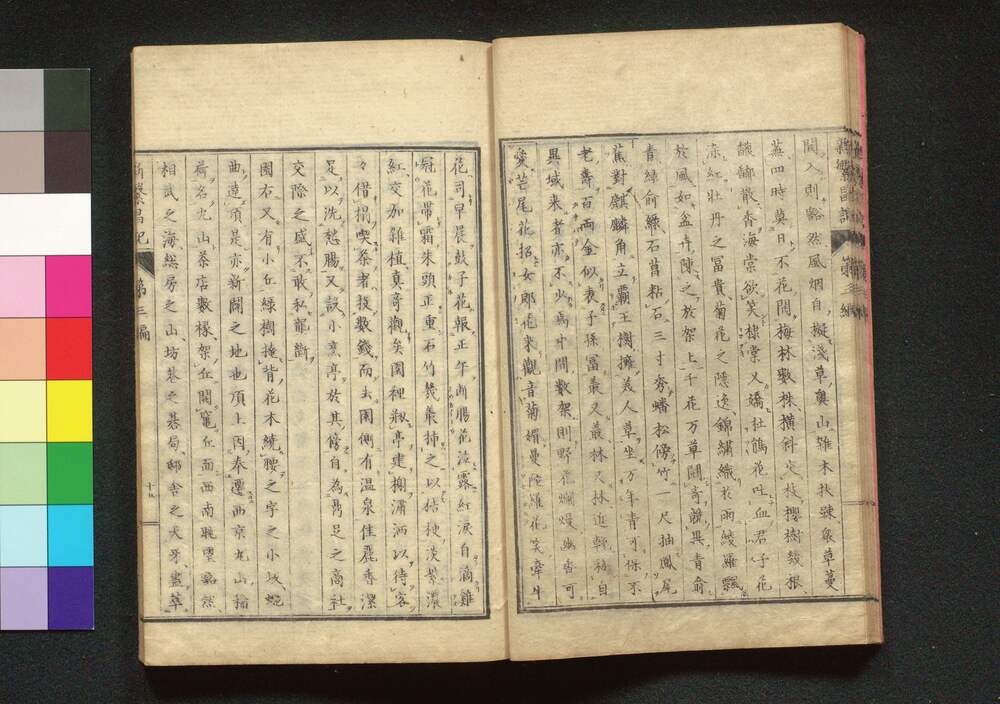 開入則豁然風烟自擬淺草奧山雜木扶疎衆草蔓
蕪四時莫日不花開梅林數株橫斜交枝櫻樹幾根
馥郁散香海棠欲笑棣棠又嬌杜鵑花吐血君子花
凉紅牡丹之冨貴菊花之隱逸錦繡織於雨綾羅飄
於風如盆卉陳之於架上千花万草鬪奇競異青
青綠俞綠石菖粘石三寸秀蟠松傍竹一尺抽鳳尾
蕉對麒麟角立覇王樹擁美人草坐万年青可保不
老壽百兩金似表子孫冨叢又叢林又林近軒移自
異域來者亦不少焉中間數架則野花爛熳幽香可
愛芒尾花招女郎花來觀音菊媚曼陀羅花笑牽牛
花司早晨鼓子花報正午斷腸花滋露紅淚自滴雞
冠花帶霜朱頭正重石竹幾叢揷之以桔梗淡紫濃
紅交加雜植真奇觀矣園裡數亭建榭瀟洒以待客
々借榻喫茶者投數錢而去園側有溫泉佳麗香潔
足以洗愁腸又設小烹亭於其傍自為鼎足之商社
交際之盛不敢私龍斷
園右又有小丘綠樹掩背花木繞腰之字之小坂蜿
曲達頂是亦新開之地也頂上因奉遷西京丸山稻
荷名丸山茶店數椽架丘開竈丘面西南眺望豁然
相武之海總房之山坊巷之碁局邸舍之犬牙盡萃
新繁昌記
第三編
十九